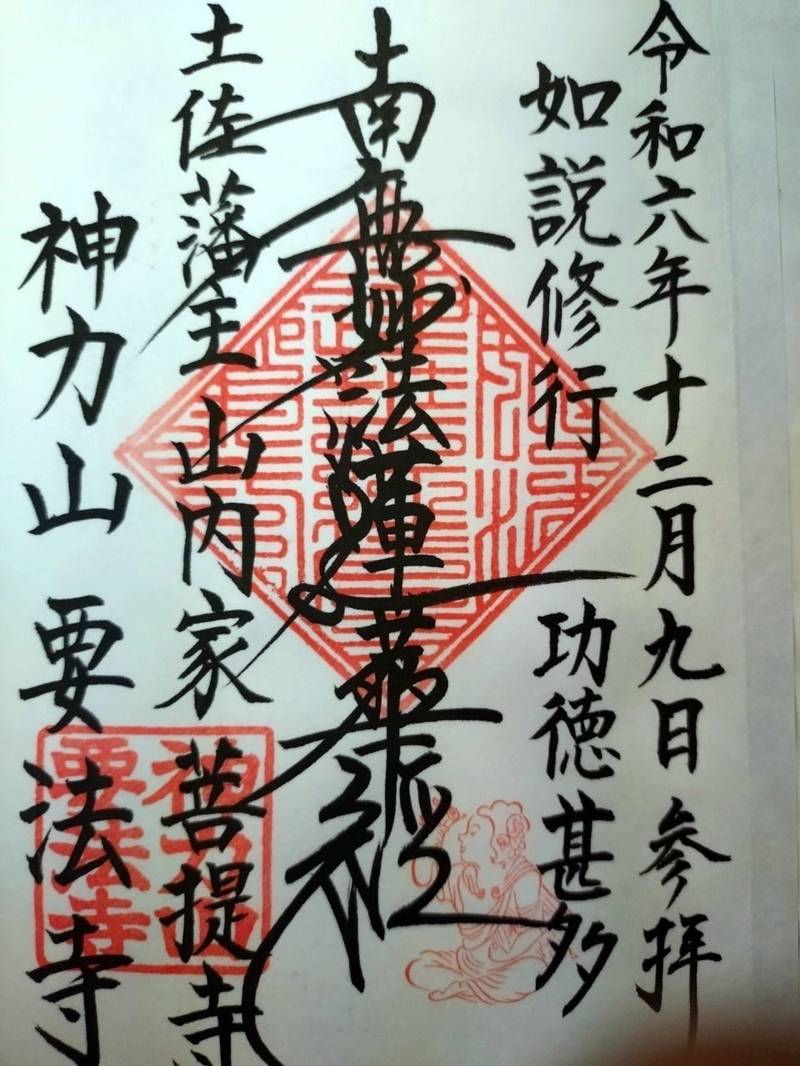 令和六年十二月九日 参拝
如説修行 功徳甚多
南無妙法蓮華経
土佐藩主山内家菩提寺
神力山 要法寺
神力山
要法寺